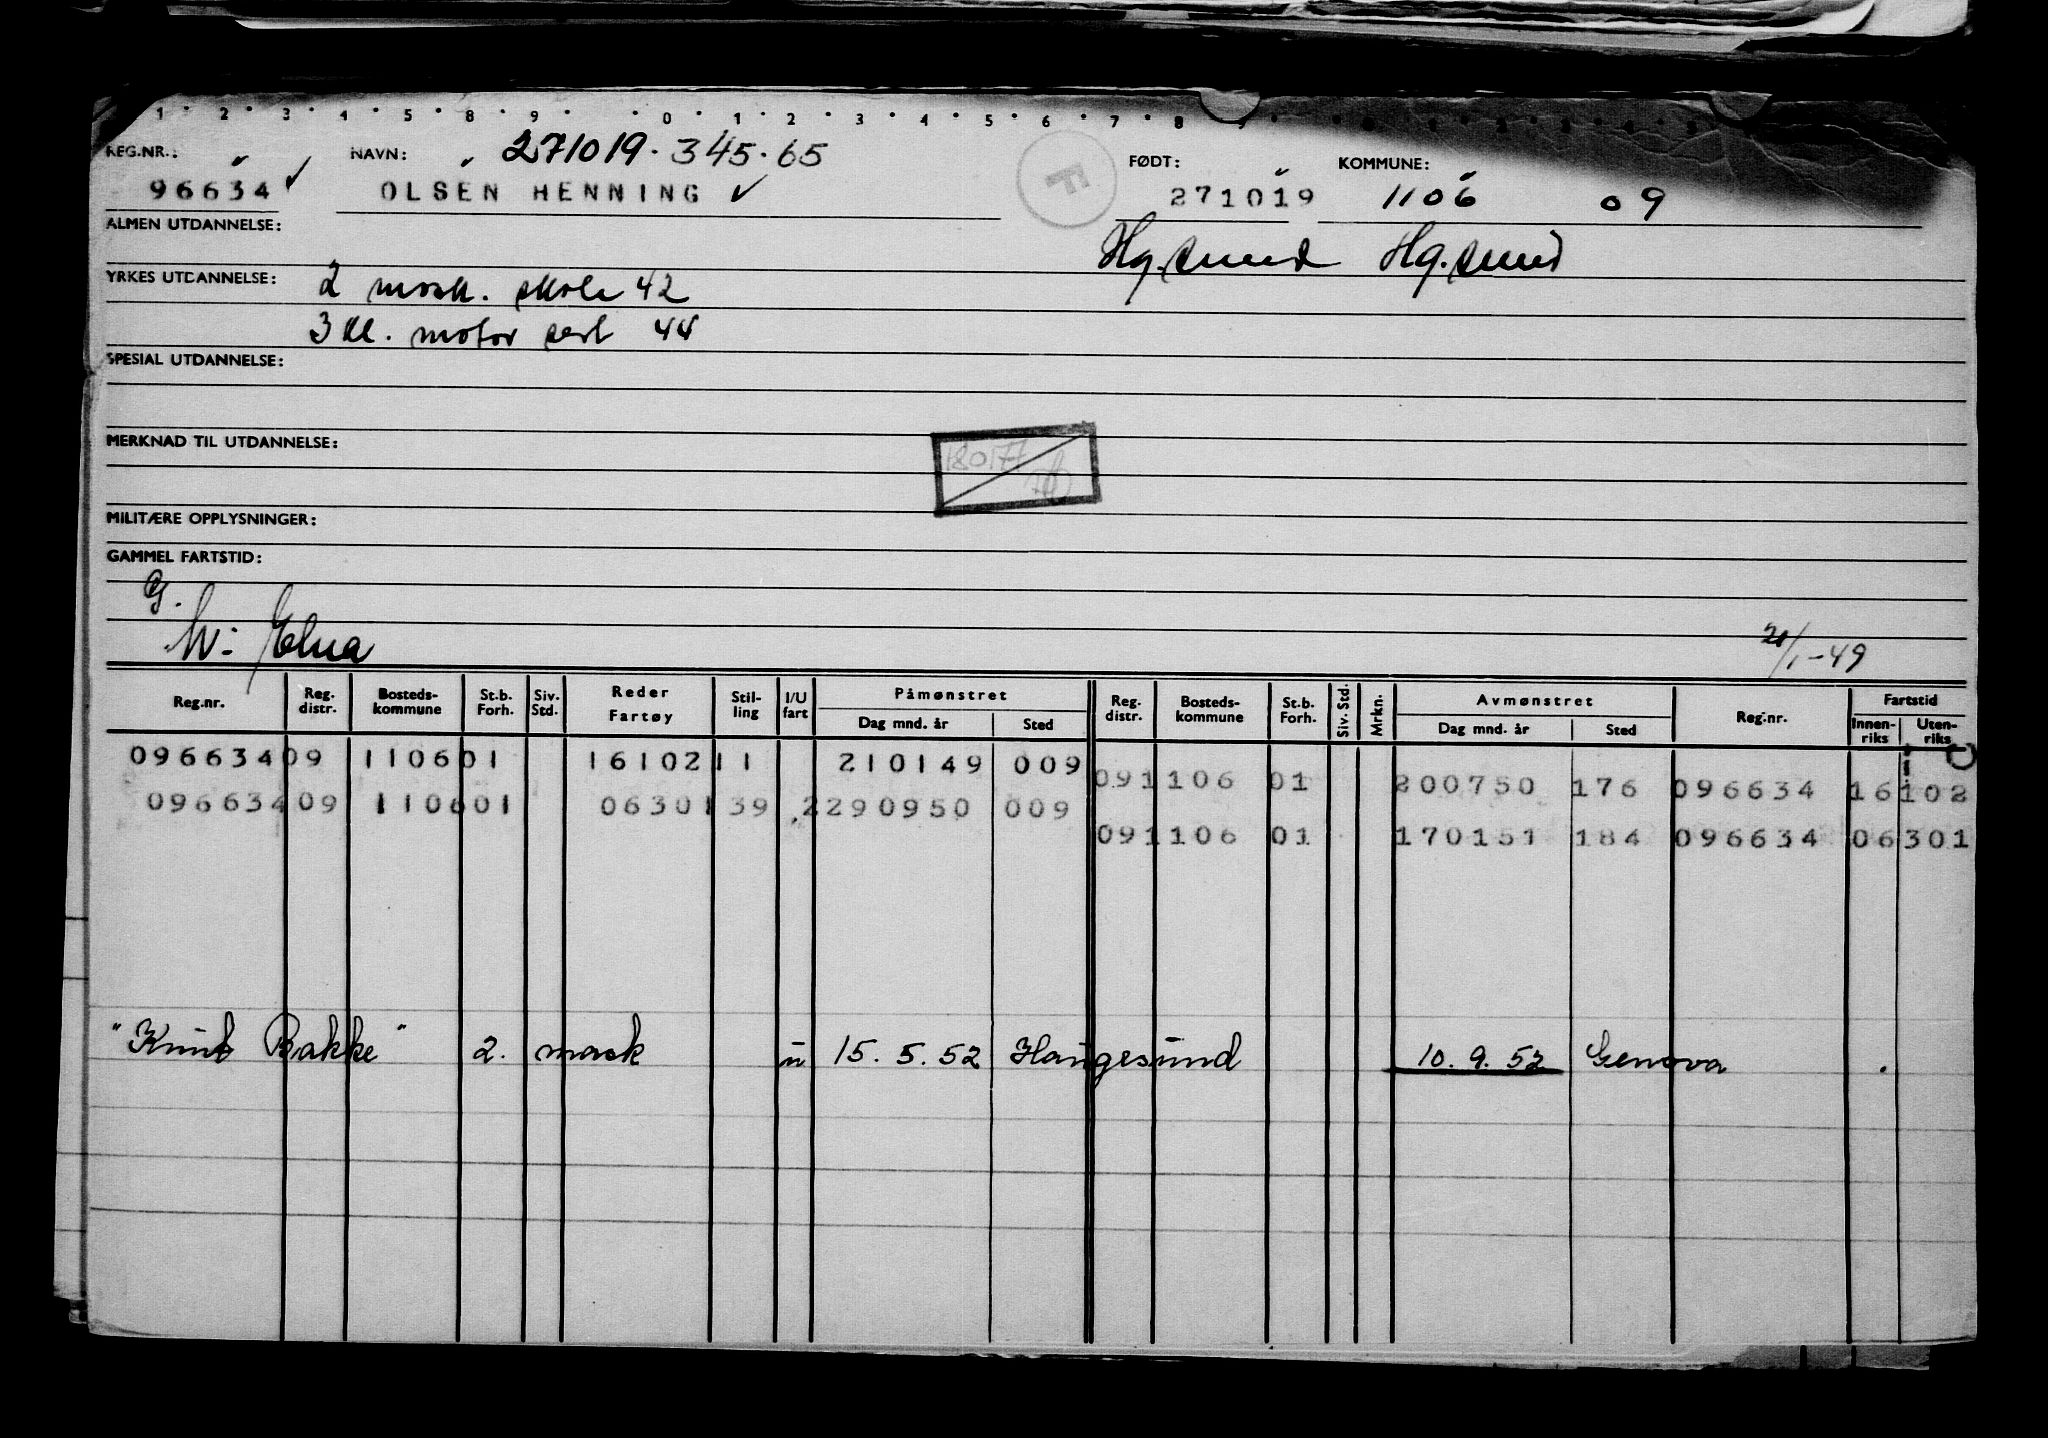 1 2 3 4 5 8 9 0 1 2 3 4 5 6 7 8
REG.NR.: NAVN: 271019.345.65 FØDT: KOMMUNE:
96634 ✓ OLSEN HENNING ✓ F 271019 1106 09
ALMEN UTDANNELSE: Hg.sund Hg.sund
YRKES UTDANNELSE: 2 mask. skole 42
3 kl. motor sert 44
SPESIAL UTDANNELSE:
MERKNAD TIL UTDANNELSE:
180177
MILITÆRE OPPLYSNINGER:
GAMMEL FARTSTID:
G.
Elna
21/1-49
Reg.nr. Reg. distr. Bosteds-kommune St.b. Forh. Siv. Std. Reder Fartøy Stil-ling I/U fart Påmønstret Dag mnd. år Sted Reg. distr. Bosteds-kommune St.b. Forh. Siv. Std. Mrkn. Avmønstret Dag mnd. år Sted Reg.nr. Fartstid Innen-riks Uten-riks
096634 09 1106 01 16102 11 210149 009
091106 01 200750 176 096634 16102
096634 09 1106 01 06301 39 2 290950 009
091106 01 170151 184 096634 06301
"Knut Bakke" 2. mask u 15.5.52 Haugesund 10.9.52 Genova